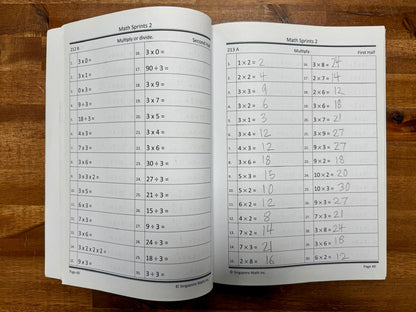 Math Sprints 2
212 B Multiply or divide. Second
1. 3 x 0 = 16. 3 x 0 =
2. 3 x 1 = 17. 90 ÷ 3 =
3. 0 x 3 = 18. 3 x 9 =
4. 9 ÷ 3 = 19. 3 x 7 =
5. 18 ÷ 3 = 20. 3 x 5 =
6. 4 x 3 = 21. 3 x 4 =
7. 7 x 3 = 22. 3 x 3 =
8. 3 x 6 = 23. 30 ÷ 3 =
9. 3 x 3 x 2 = 24. 27 ÷ 3 =
10. 3 x 5 = 25. 21 ÷ 3 =
11. 6 x 3 = 26. 15 ÷ 3 =
12. 7 x 3 = 27. 9 ÷ 3 =
13. 3 x 6 = 28. 24 ÷ 3 =
14. 3 x 2 x 2 x 2 = 29. 18 ÷ 3 =
15. 9 x 3 = 30. 3 ÷ 3 =
© Singapore Math Inc.
Math Sprints 2
213 A Multiply. First Half
1. 1 x 2 = 2 16. 3 x 8 = 24
2. 2 x 2 = 4 17. 7 x 2 = 14
3. 3 x 3 = 9 18. 2 x 6 = 12
4. 3 x 2 = 6 19. 3 x 6 = 18
5. 3 x 1 = 3 20. 3 x 7 = 21
6. 3 x 4 = 12 21. 3 x 9 = 27
7. 4 x 3 = 12 22. 9 x 3 = 27
8. 3 x 6 = 18 23. 9 x 2 = 18
9. 5 x 3 = 15 24. 10 x 2 = 20
10. 5 x 2 = 10 25. 10 x 3 = 30
11. 6 x 2 = 12 26. 9 x 3 = 27
12. 4 x 2 = 8 27. 7 x 3 = 21
13. 7 x 2 = 14 28. 3 x 8 = 24
14. 7 x 3 = 21 29. 3 x 6 = 18
15. 2 x 8 = 16 30. 6 x 2 = 12
© Singapore Math Inc.